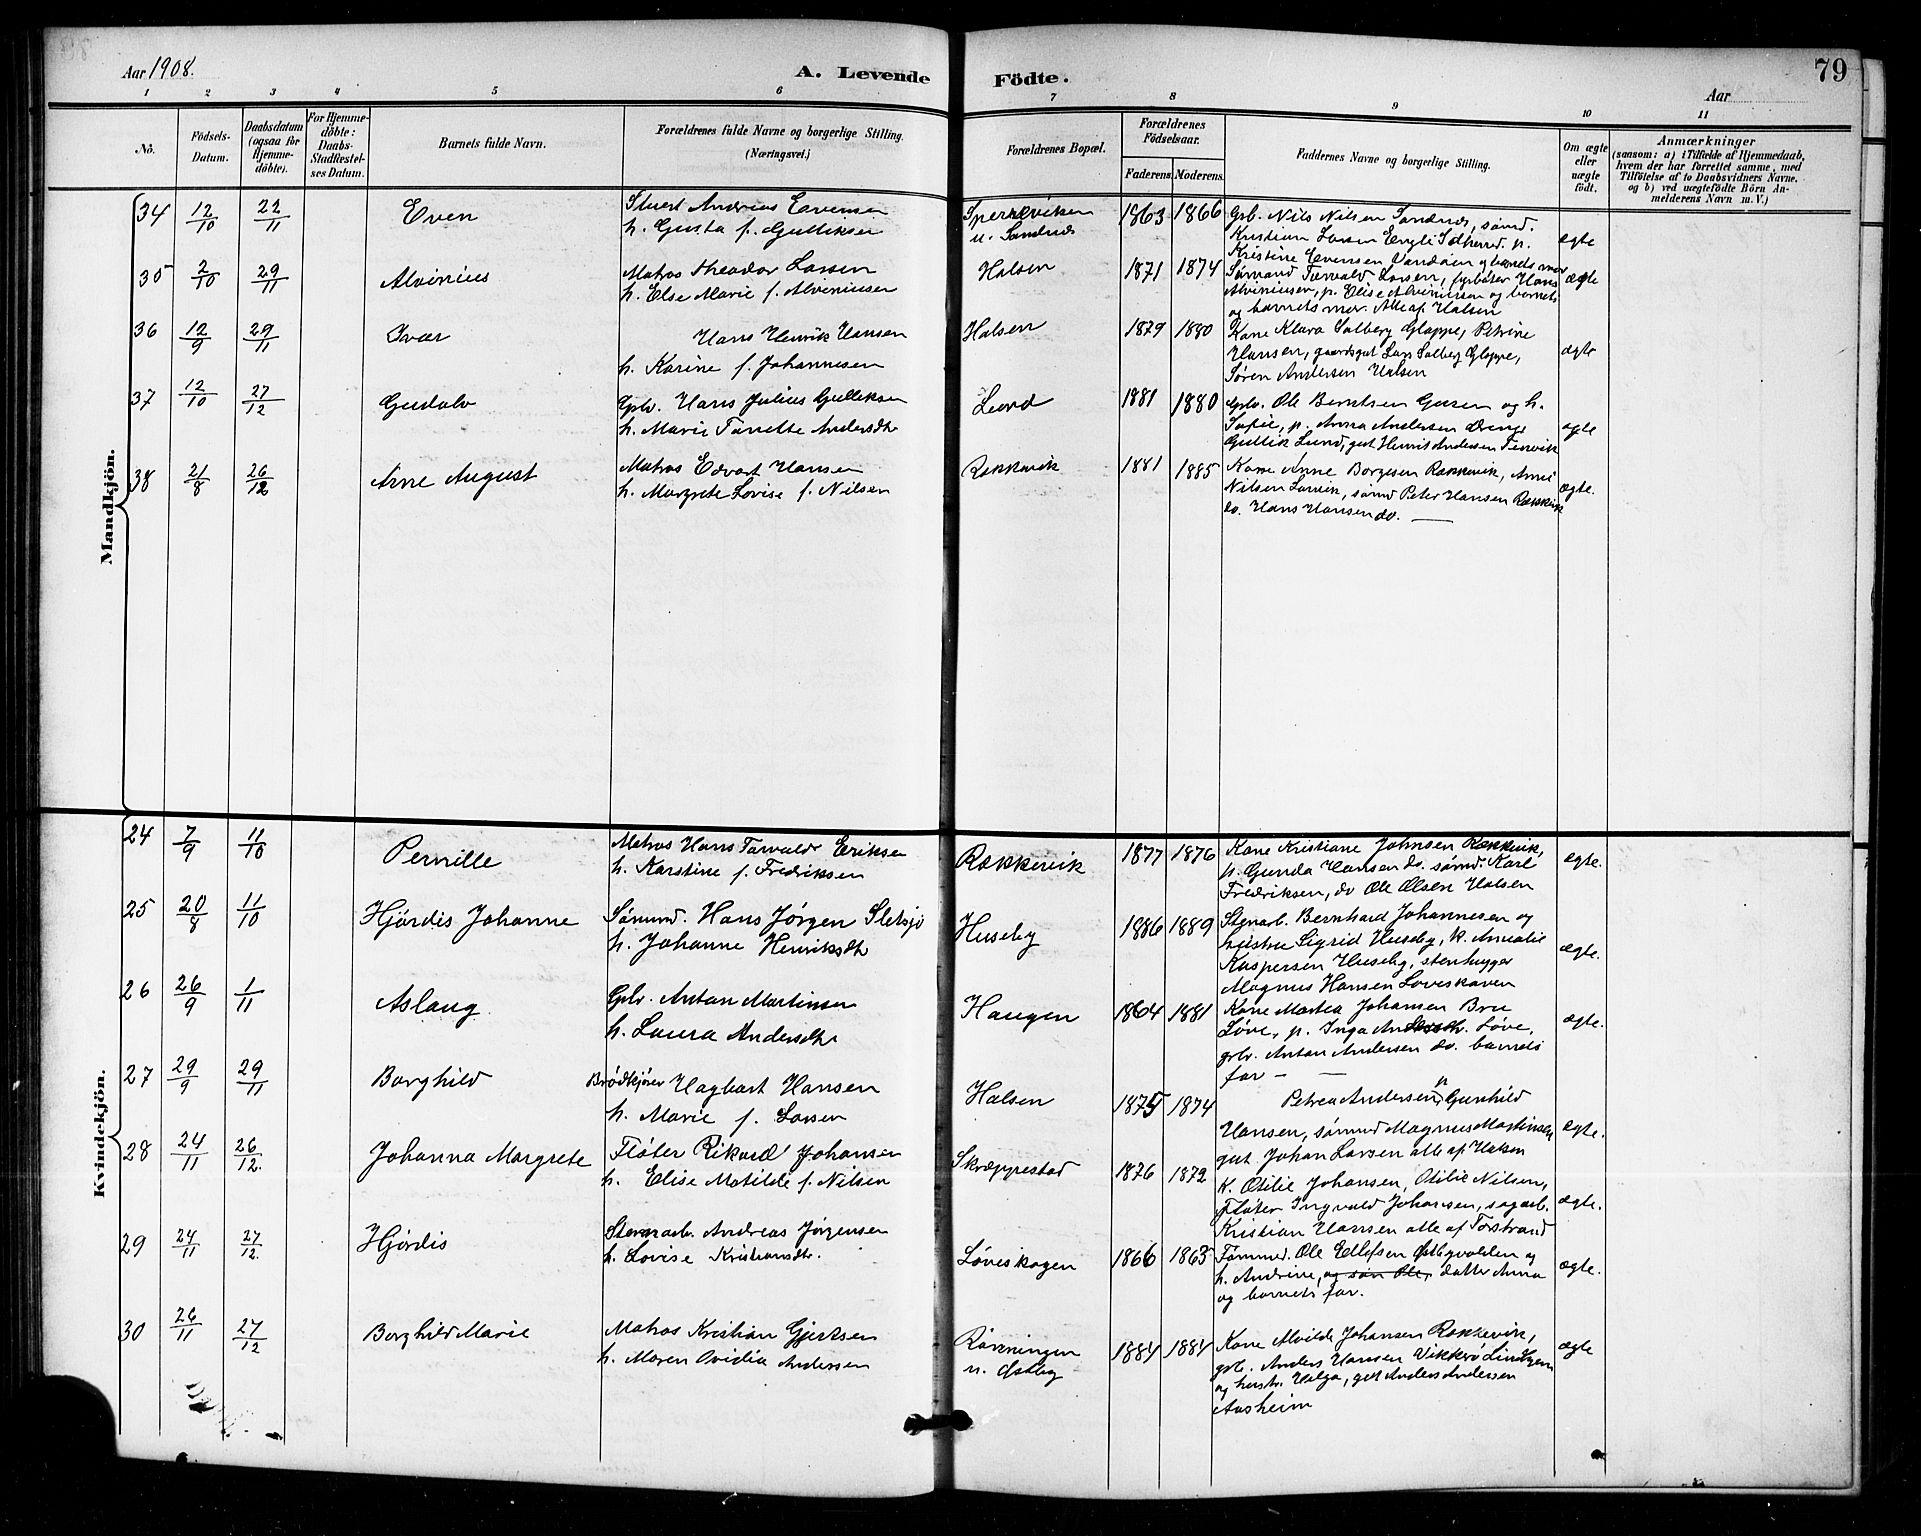 Aar 1908.
A. Levende Födte.
79
Aar
1 2 3 4 5 6 7 8 9 10 11
No.
Födsels-Datum.
Daabsdatum (ogsaa for Hjemme-döbte).
For Hjemme-döbte: Daabs-Stadfæstel-ses Datum.
Barnets fulde Navn.
Forældrenes fulde Navne og borgerlige Stilling. (Næringsvei.)
Forældrenes Bopæl.
Forældrenes Födselsaar.
Faderens. Moderens.
Faddernes Navne og borgerlige Stilling.
Om ægte eller uægte födt.
Anmærkninger
(saasom: a) i Tilfælde af Hjemmedaab, hvem der har forrettet samme, med Tilföielse af to Daabsvidners Navne. og b) ved uægtefödte Börn An-melderens Navn m. V.)
Mandkjön.
34 12/10 22/11 Even
Stuert Andreas Evensen
h. Gusta f. Gulliksen
Sperreviken
u. Sandnes
1863 1866
Grb. Nils Nilsen Sandnes, sömd.
Kristian Larsen Engli Tdherred p.
Kristine Evensen Vandöen og barnets mor
ægte
35 2/10 29/11 Alvinius
Matros Theodor Larsen
h. Else Marie f. Alveniusen
Halsen
1871 1874
Sømand Torvald Larsen, fyrböter Hans
Alviniusen, p. Elise Alviniusen og barnets
og barnets mor. Alle af Halsen
ægte
36 12/9 29/11 Ivar
Hans Henrik Hansen
h. Karine f. Johannesen
Halsen
1879 1880
Kone Klara Solberg Gloppe, Petrine
Hansen, gaardsgut Lars Solberg Gloppe,
Søren Andersen Halsen
ægte
37 12/10 27/12 Gudolv
Gplv. Hans Julius Gulliksen
h. Marie Tonette Andersdtr
Lund
1881 1880
Gplv. Ole Berntsen Gusen og h.
Sofie, p. Anna Andersen Dreng
Gullik Lund, gut Henrik Andersen Tenvik
ægte
38 21/8 26/12 Arne August
Matros Edvart Hansen
h. Margrete Lovise f. Nilsen
Rækkevik
1881 1885
Kone Anne Borgesen Rækkevik, Anne
Nilsen Larvik, sömd Peter Hansen Rækkevik
do. Hans Hansen do. —
ægte.
Kvindekjön.
24 7/9 11/10 Pernille
Matros Hans Torvald Eriksen
h. Karstine f. Fredriksen
Rækkevik
1877 1876
Kone Kristiane Johnsen Rækkevik,
p. Gunda Hansen do. sömd. Karl
Fredriksen, do Ole Olsen Halsen
ægte.
25 20/8 11/10 Hjördis Johanne
Sømand. Hans Jørgen Sletsjö
h. Johanne Henriksdtr
Huseby
1886 1889
Stenarb. Bernhard Johannesen og
hustru Sigrid Huseby, k. Amalie
Kaspersen Huseby, stenhugger
Magnus Hansen Løveskoven
ægte.
26 26/9 1/11 Aslaug
Gplv. Anton Martinsen
h. Laura Andersdtr
Haugen
1864 1881
Kone Martea Johansen Bru
Løve, p. Inga Andersdtr. Løve,
grbr. Anton Andersen do. barnets
far — —
ægte.
27 29/9 29/11 Borghild
Brödkjörer Hagbart Hansen
h. Marie f. Larsen
Halsen
1875 1874
Petrea Andersen, p Gunhild
Hansen, sömnd Magnus Martinsen
gut. Johan Larsen alle af Halsen
ægte.
28 24/11 26/12. Johanna Margrete
Fløter Rikard Johansen
h. Elise Matilde f. Nilsen
Skræppestad
1876 1872
K. Otilie Johansen, Otilie Nilsen,
Fløter Ingvald Johansen, sagarb.
Kristian Hansen alle af Torstrand
ægte.
29 24/11 27/12. Hjördis
Stenarb. Andreas Jørgensen
h. Lovise Kristiansdtr.
Løveskogen
1866 1863
Tømmd. Ole Ellefsen Østbyvolden og
h. Andrine, og søn Ole, datter Anna
og barnets far.
ægte.
30 26/11 27/12 Borghild Marie
Matros Kristian Gjertsen
h. Maren Ovidia Andersen
Rönningen
u. Østby
1884 1884
Kone Alvilde Johansen Rækkevik,
grb. Anders Hansen Vikkerö Lindhjem
og hustr. Helga, gut Anders Andersen
Aasheim
ægte